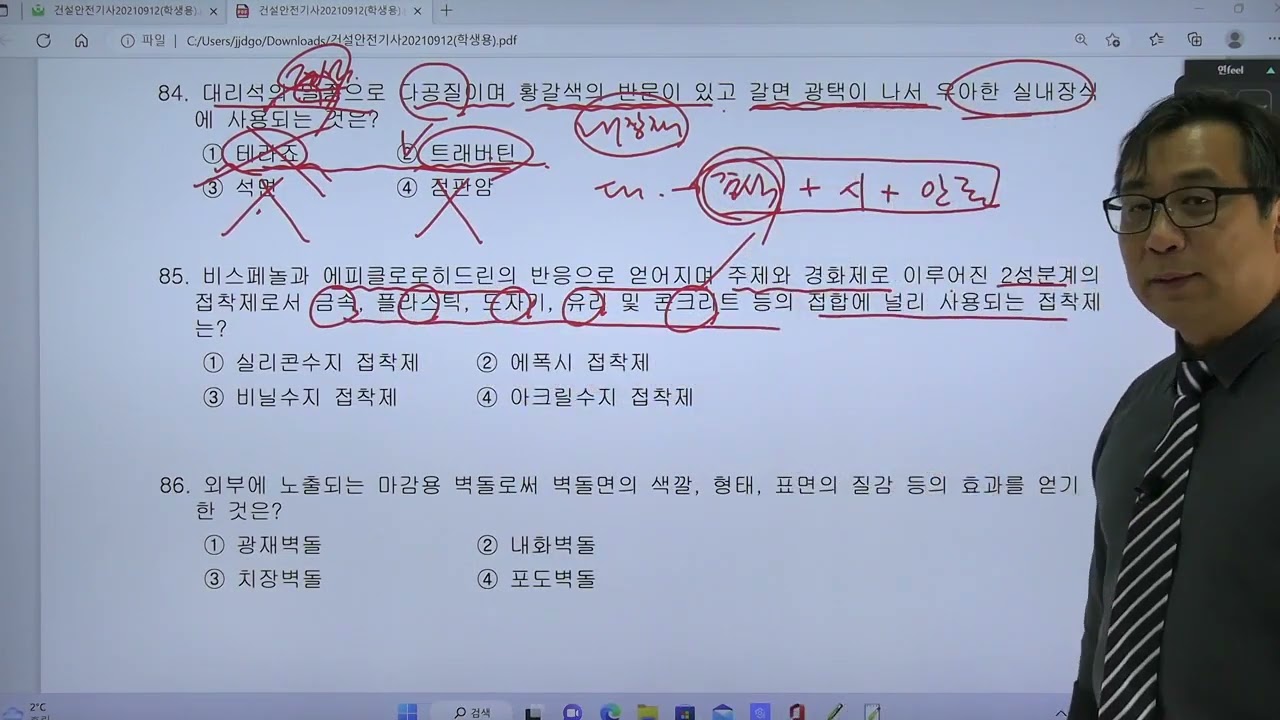 건설안전기사20210912(학생용).
건설안전기사20210912(학생용).pdf
파일 C:/Users/jjdgo/Downloads/건설안전기사20210912(학생용).pdf
연feel
84. 대리석의 일종으로 다공질이며 황갈색의 반문이 있고 갈면 광택이 나서 우아한 실내장식
에 사용되는 것은?
내장재
① 테라죠 ② 트래버틴
③ 석면 ④ 점판암
+ 시 + 안료
85. 비스페놀과 에피클로로히드린의 반응으로 얻어지며 주제와 경화제로 이루어진 2성분계의
접착제로서 금속, 플라스틱, 도자기, 유리 및 콘크리트 등의 접합에 널리 사용되는 접착제
는?
① 실리콘수지 접착제 ② 에폭시 접착제
③ 비닐수지 접착제 ④ 아크릴수지 접착제
86. 외부에 노출되는 마감용 벽돌로써 벽돌면의 색깔, 형태, 표면의 질감 등의 효과를 얻기
한 것은?
① 광재벽돌 ② 내화벽돌
③ 치장벽돌 ④ 포도벽돌
2°C
흐림
검색